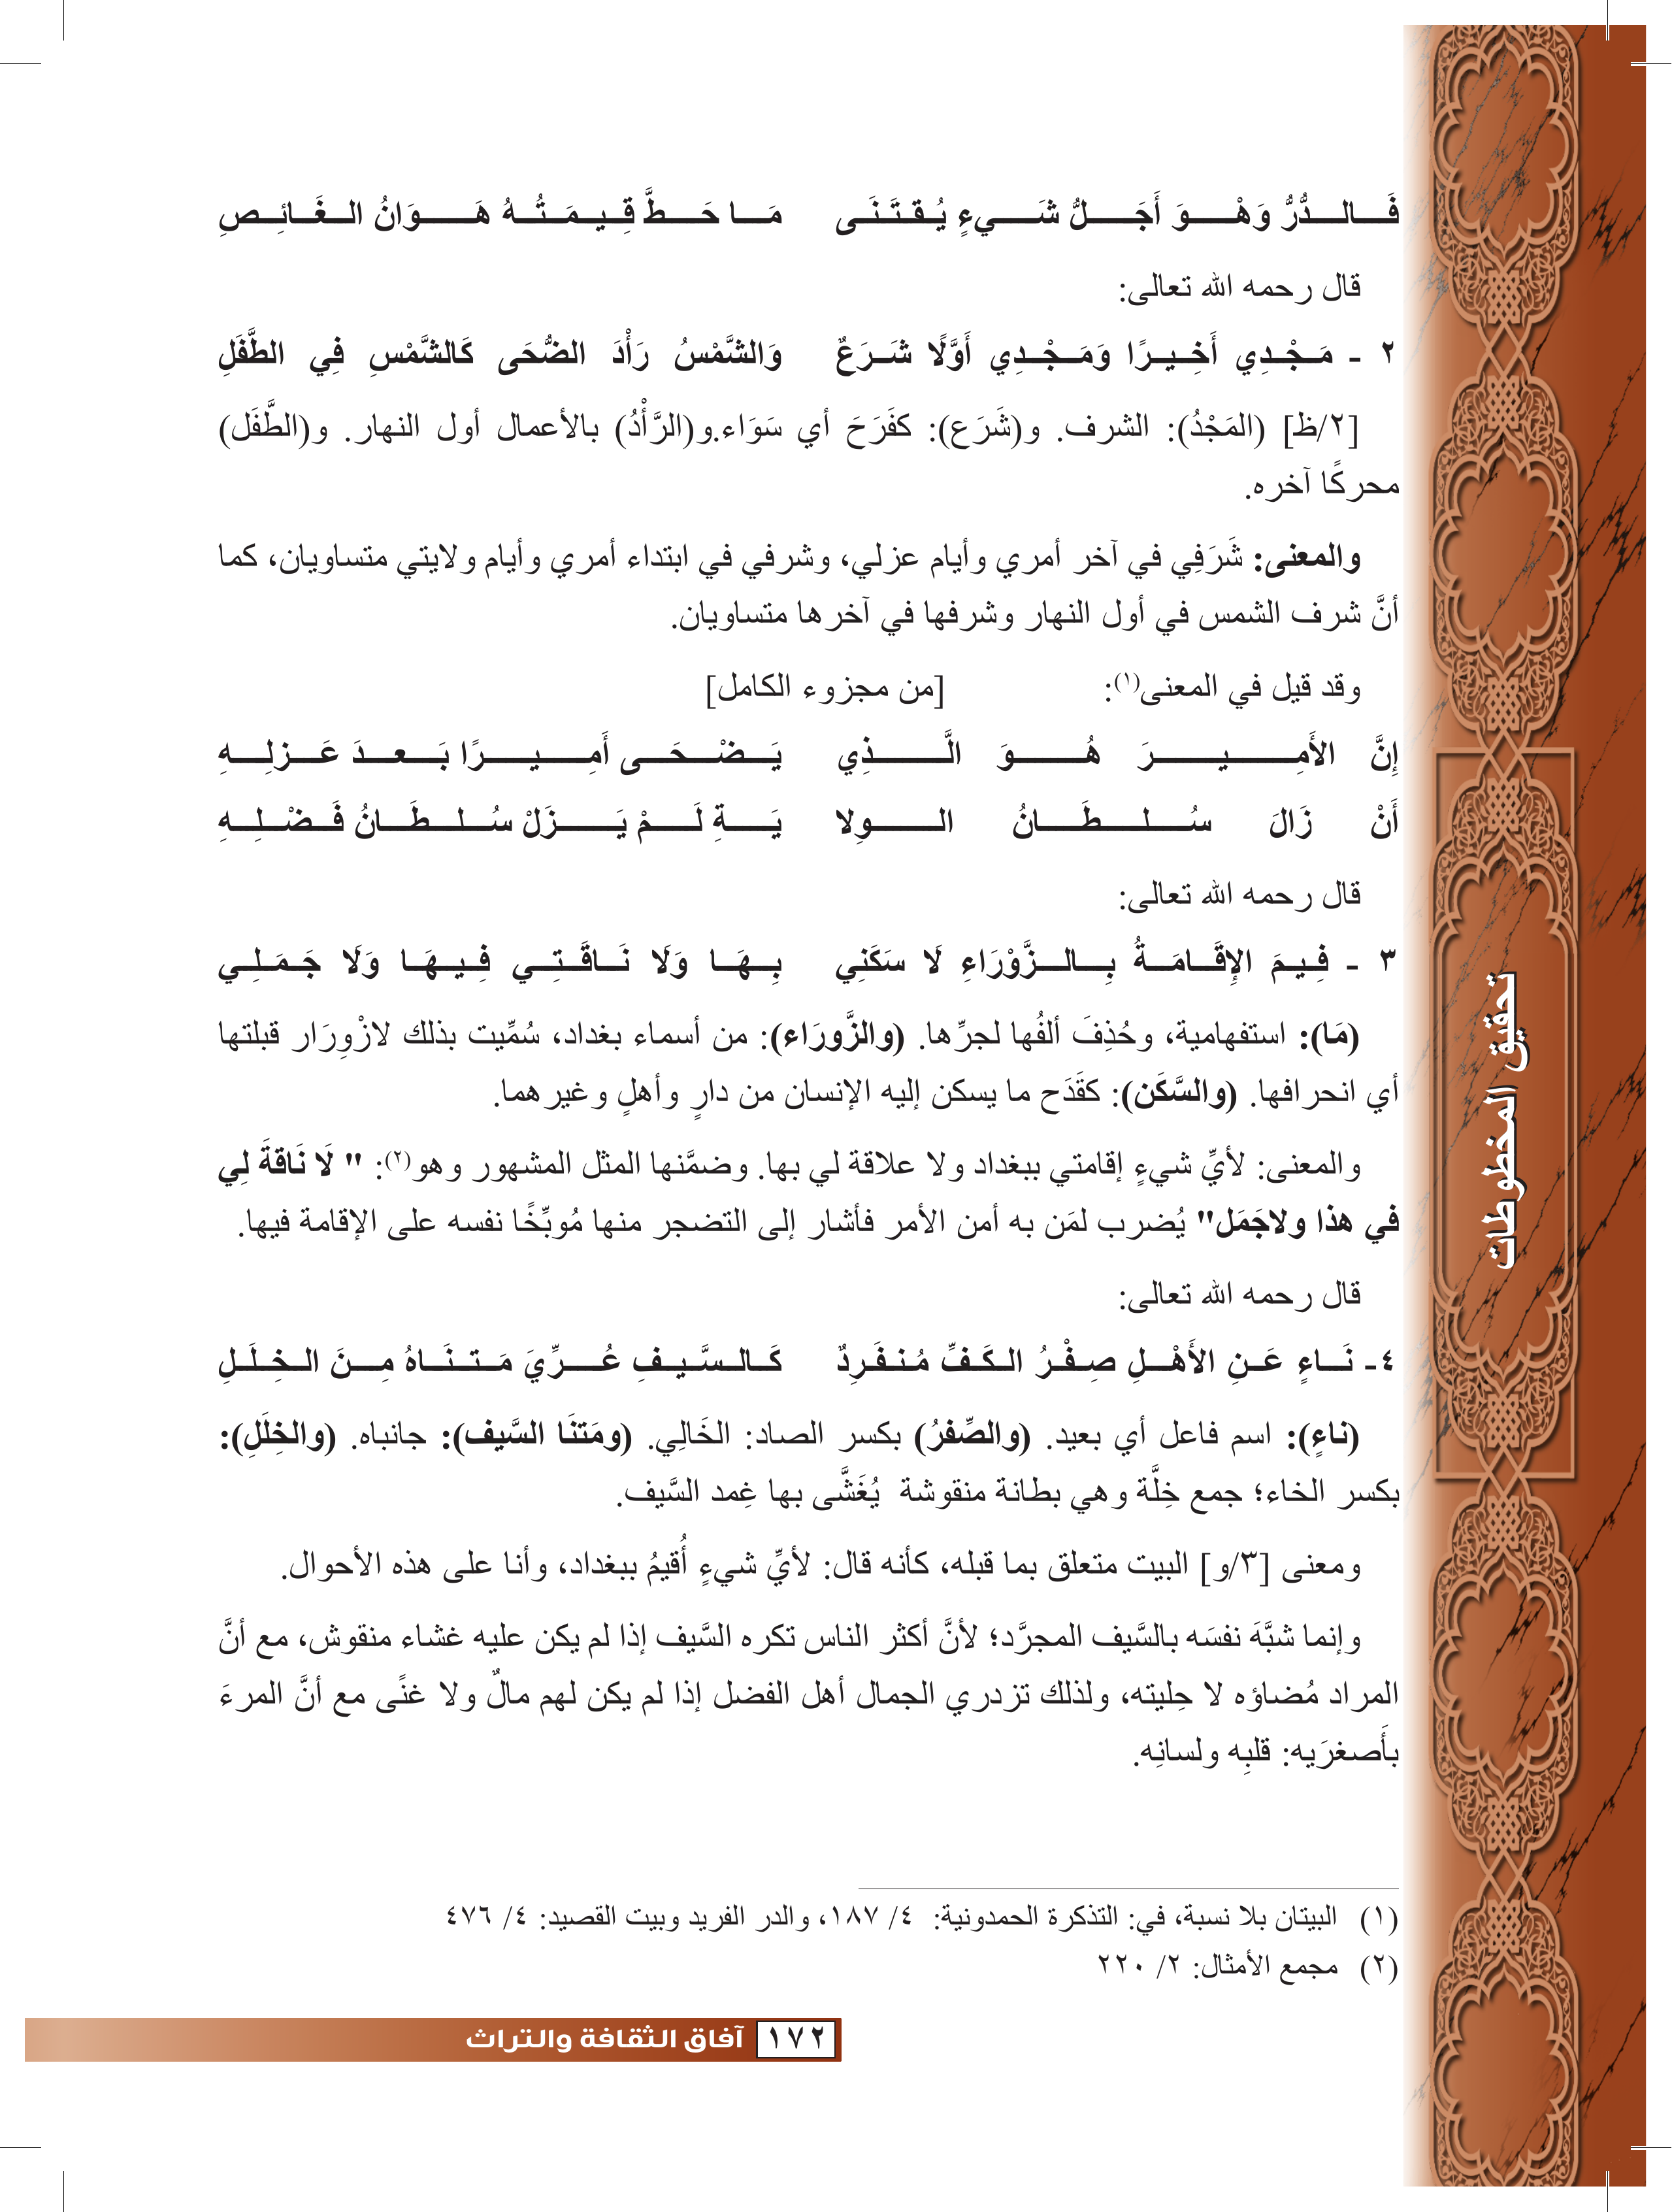 فَالدُّرُّ وَهْوَ أَجَلُّ شَيءٍ يُقتَنَى مَا حَطَّ قِيمَتُهُ هَوَانُ الغَائِصِ
قال رحمه الله تعالى:
٢ - مَجْدِي أَخِيرًا وَمَجْدِي أَوَّلًا شَرَعٌ وَالشَّمْسُ رَأْدَ الضُّحَى كَالشَّمْسِ فِي الطَّفَلِ
[٢/ظ] (المَجْدُ): الشرف. و(شَرَع): كفَرَحَ أي سَوَاء.و(الرَّأْدُ) بالأعمال أول النهار. و(الطَّفَل)
محركًا آخره.
والمعنى: شَرَفِي في آخر أمري وأيام عزلي، وشرفي في ابتداء أمري وأيام ولايتي متساويان، كما
أنَّ شرف الشمس في أول النهار وشرفها في آخرها متساويان.
وقد قيل في المعنى(١): [من مجزوء الكامل]
إنَّ الأَمِيرَ هُوَ الَّذِي يَضْحَى أَمِيرًا بَعدَ عَزلِهِ
أَنْ زَالَ سُلطَانُ الوِلا يَةِ لَمْ يَزَلْ سُلطَانُ فَضْلِهِ
قال رحمه الله تعالى:
٣ - فِيمَ الإِقَامَةُ بِالزَّوْرَاءِ لَا سَكَنِي بِهَا وَلَا نَاقَتِي فِيهَا وَلَا جَمَلِي
(مَا): استفهامية، وحُذِفَ ألفُها لجرِّها. (والزَّورَاء): من أسماء بغداد، سُمِّيت بذلك لازْوِرَار قبلتها
أي انحرافها. (والسَّكَن): كقَدَح ما يسكن إليه الإنسان من دارٍ وأهلٍ وغيرهما.
والمعنى: لأيِّ شيءٍ إقامتي ببغداد ولا علاقة لي بها. وضمَّنها المثل المشهور وهو(٢): " لَا نَاقةَ لِي
في هذا ولاجَمَل" يُضرب لمَن به أمن الأمر فأشار إلى التضجر منها مُوبِّخًا نفسه على الإقامة فيها.
قال رحمه الله تعالى:
٤- نَاءٍ عَنِ الأَهْلِ صِفْرُ الكَفِّ مُنفَرِدٌ كَالسَّيفِ عُرِّيَ مَتنَاهُ مِنَ الخِلَلِ
(ناءٍ): اسم فاعل أي بعيد. (والصِّفرُ) بكسر الصاد: الخَالِي. (ومَتنَا السَّيف): جانباه. (والخِلَلِ):
بكسر الخاء؛ جمع خِلَّة وهي بطانة منقوشة يُغَشَّى بها غِمد السَّيف.
ومعنى [٣/و] البيت متعلق بما قبله، كأنه قال: لأيِّ شيءٍ أُقيمُ ببغداد، وأنا على هذه الأحوال.
وإنما شبَّهَ نفسَه بالسَّيف المجرَّد؛ لأنَّ أكثر الناس تكره السَّيف إذا لم يكن عليه غشاء منقوش، مع أنَّ
المراد مُضاؤه لا حِليته، ولذلك تزدري الجمال أهل الفضل إذا لم يكن لهم مالٌ ولا غنًى مع أنَّ المرءَ
بأَصغرَيه: قلبِه ولسانِه.
(١) البيتان بلا نسبة، في: التذكرة الحمدونية: ٤/ ١٨٧، والدر الفريد وبيت القصيد: ٤/ ٤٧٦
(٢) مجمع الأمثال: ٢/ ٢٢٠
١٧٢ آفاق الثقافة والتراث
تحقيق المخطوطات